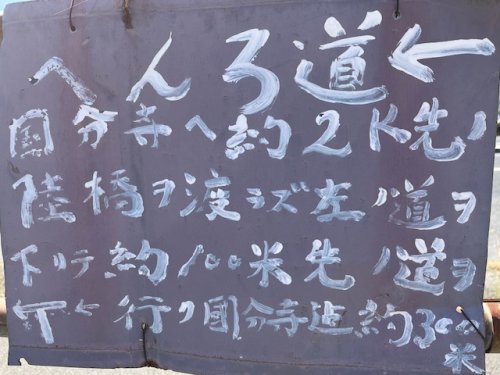 へんろ道←
国分寺へ約2K先ノ
陸橋ヲ渡ラズ左ノ道ヲ
下リテ約100米先ノ道ヲ
行ク国分寺迄約300米